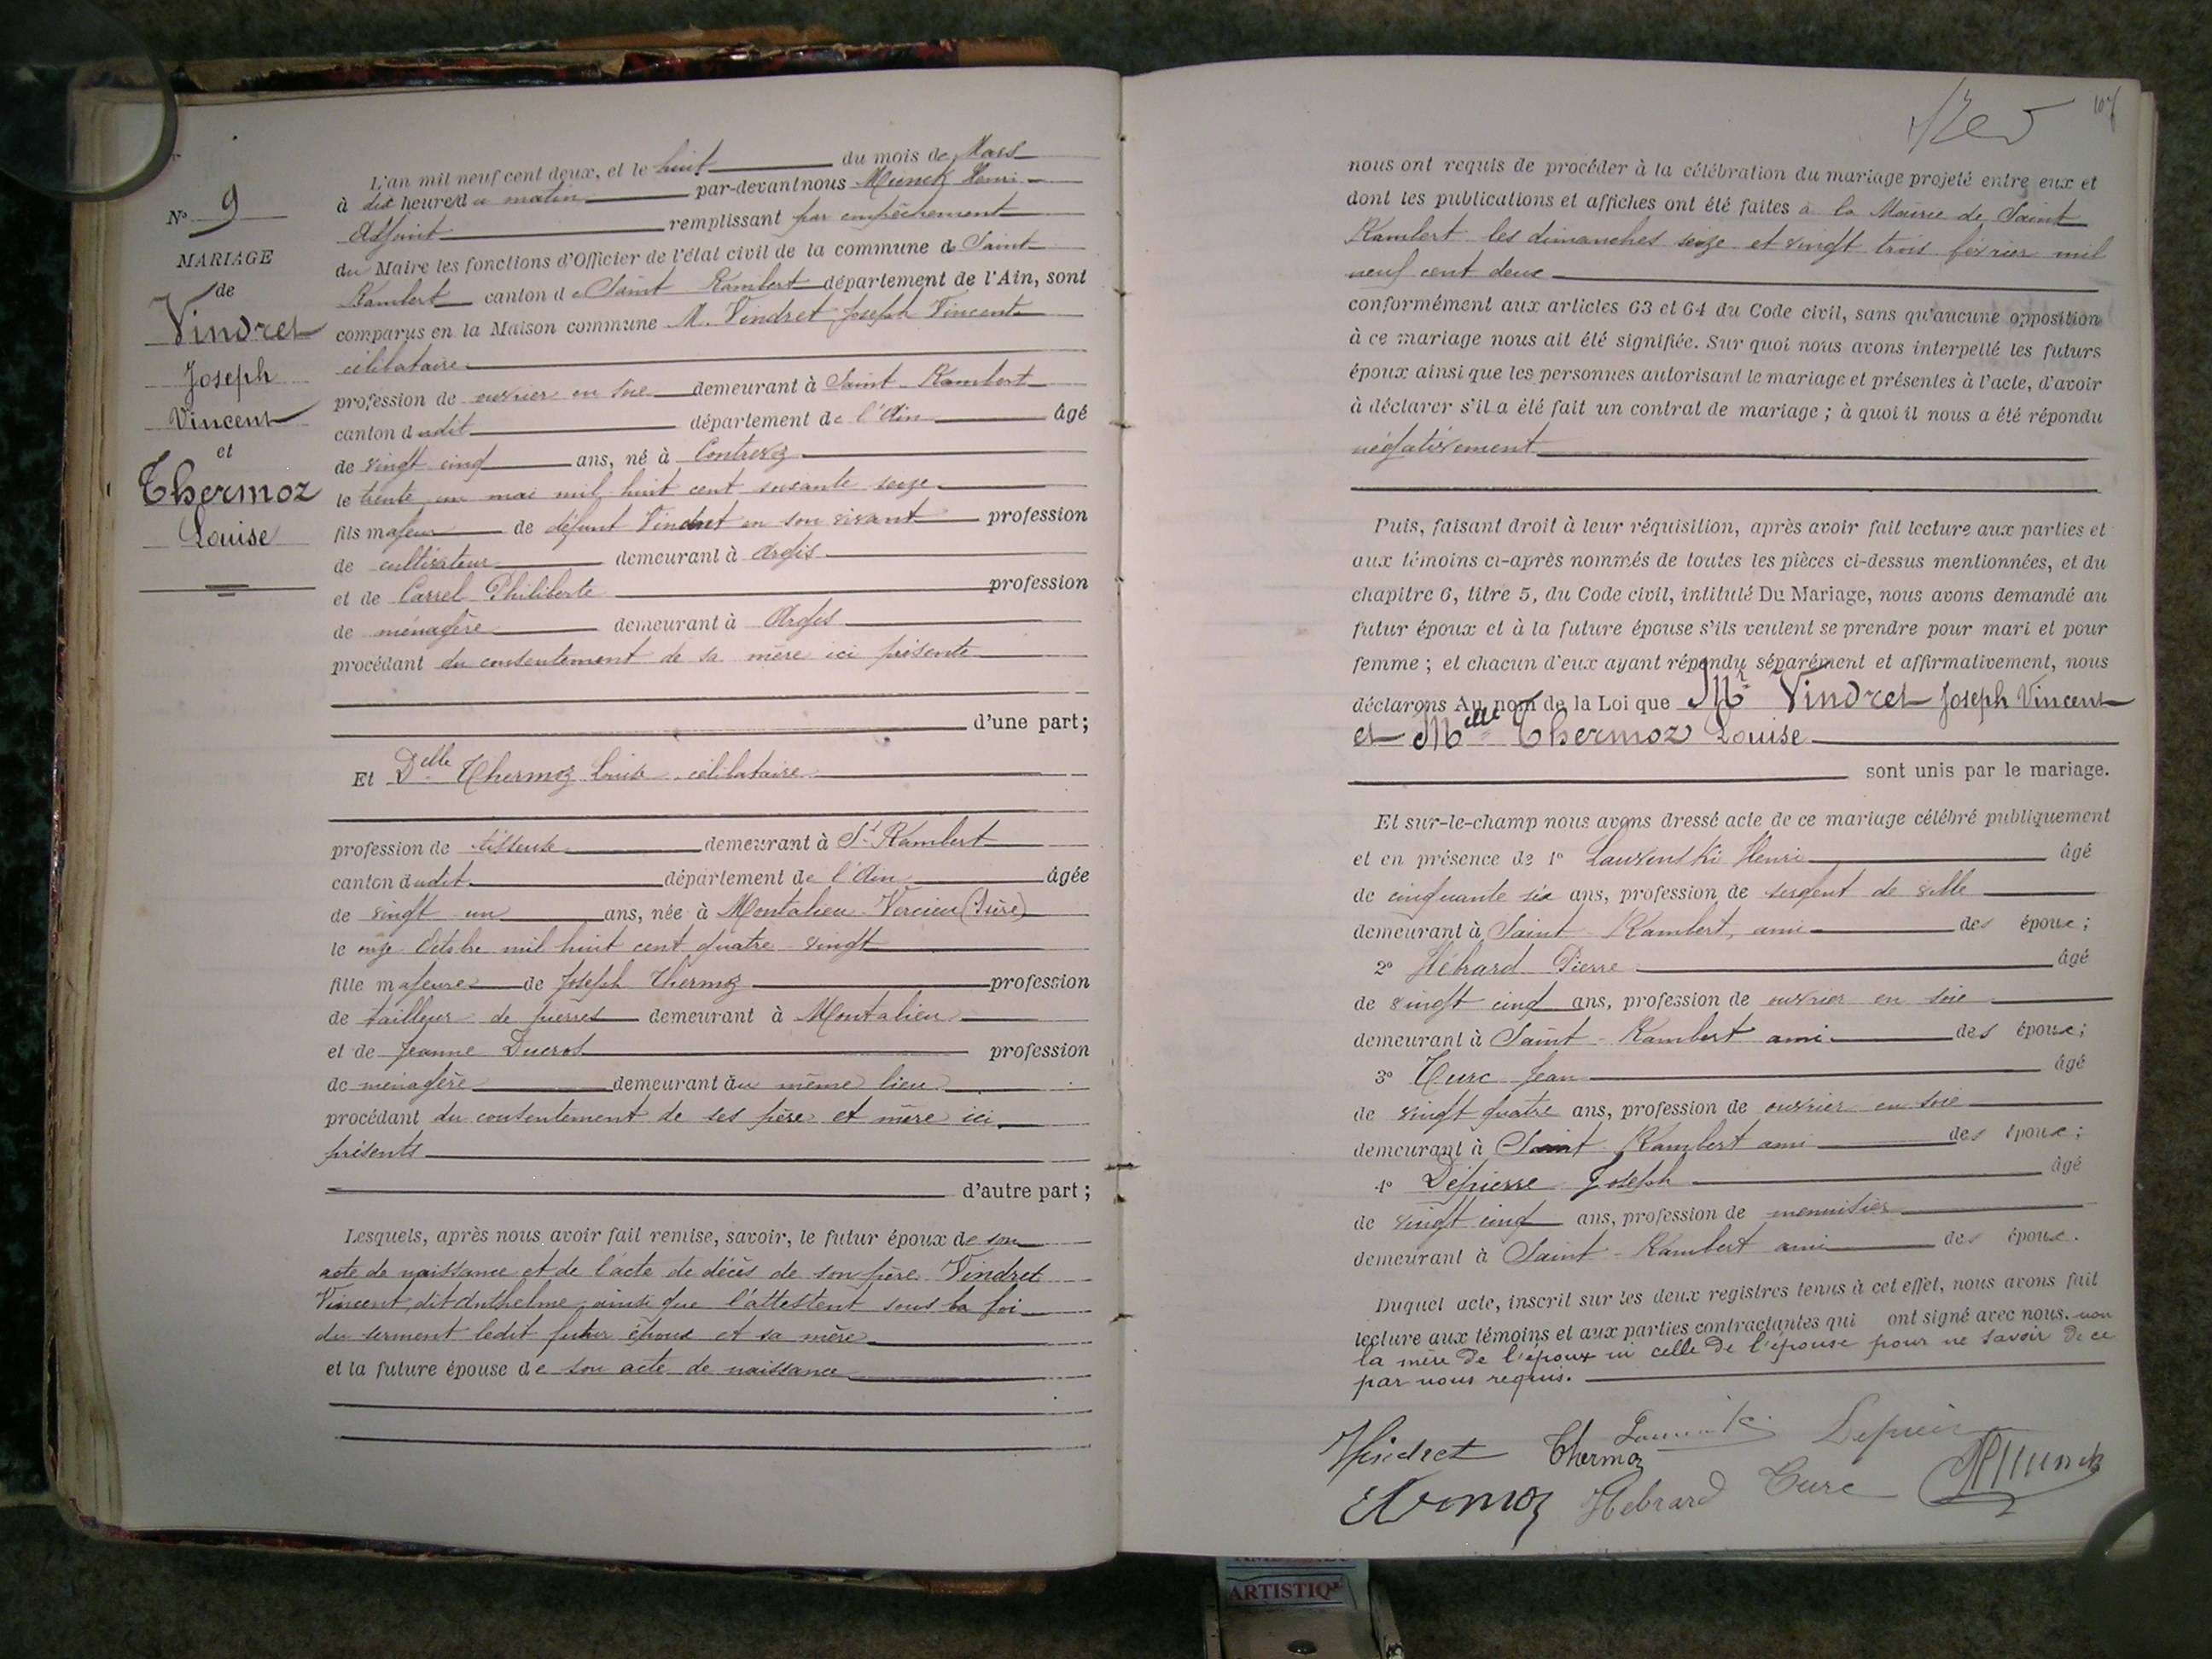 N° 9
MARIAGE
de
Vindret
Joseph
Vincent
et
Thermoz
Louise
L'an mil neuf cent deux, et le huit du mois de Mars
à dix heures du matin par-devant nous Munck Henri
Adjoint remplissant par empêchement
du Maire les fonctions d'Officier de l'état civil de la commune de Saint
Rambert canton de Saint Rambert département de l'Ain, sont
comparus en la Maison commune M. Vindret Joseph Vincent
célibataire
profession de ouvrier en soie demeurant à Saint-Rambert
canton dudit département de l'Ain âgé
de vingt cinq ans, né à Contrevoz
le trente un mai mil huit cent soixante seize
fils majeur de défunt Vindret en son vivant profession
de cultivateur demeurant à Argis
et de Carrel Philiberte profession
de ménagère demeurant à Argis
procédant du consentement de sa mère ici présente
d'une part;
Et Delle Thermoz Louise célibataire
profession de tisseuse demeurant à St Rambert
canton dudit département de l'Ain âgée
de vingt un ans, née à Montalieu-Vercieu (Isère)
le onze Octobre mil huit cent quatre-vingt
fille majeure de Joseph Thermoz profession
de tailleur de pierres demeurant à Montalieu
et de Jeanne Ducros profession
de ménagère demeurant au même lieu
procédant du consentement de ses père et mère ici
présents
d'autre part;
Lesquels, après nous avoir fait remise, savoir, le futur époux de son
acte de naissance et de l'acte de décès de son père Vindret
Vincent dit Anthelme, ainsi que l'attestent sous la foi
du serment ledit futur époux et sa mère
et la future épouse de son acte de naissance
107
nous ont requis de procéder à la célébration du mariage projeté entre eux et
dont les publications et affiches ont été faites à la Mairie de Saint
Rambert les dimanches seize et vingt trois février mil
neuf cent deux
conformément aux articles 63 et 64 du Code civil, sans qu'aucune opposition
à ce mariage nous ait été signifiée. Sur quoi nous avons interpellé les futurs
époux ainsi que les personnes autorisant le mariage et présentes à l'acte, d'avoir
à déclarer s'il a été fait un contrat de mariage; à quoi il nous a été répondu
négativement
Puis, faisant droit à leur réquisition, après avoir fait lecture aux parties et
aux témoins ci-après nommés de toutes les pièces ci-dessus mentionnées, et du
chapitre 6, titre 5, du Code civil, intitulé Du Mariage, nous avons demandé au
futur époux et à la future épouse s'ils veulent se prendre pour mari et pour
femme; et chacun d'eux ayant répondu séparément et affirmativement, nous
déclarons Au nom de la Loi que Mr Vindret Joseph Vincent
et Melle Thermoz Louise
sont unis par le mariage.
Et sur-le-champ nous avons dressé acte de ce mariage célébré publiquement
et en présence de 1° Lauzenski Henri âgé
de cinquante six ans, profession de sergent de ville
demeurant à Saint-Rambert, ami des époux;
2° Hébrard Pierre âgé
de vingt cinq ans, profession de ouvrier en soie
demeurant à Saint-Rambert ami des époux;
3° Turc Jean âgé
de vingt quatre ans, profession de ouvrier en soie
demeurant à Saint-Rambert ami des époux;
4° Dépierre Joseph âgé
de vingt cinq ans, profession de menuisier
demeurant à Saint-Rambert ami des époux.
Duquel acte, inscrit sur les deux registres tenus à cet effet, nous avons fait
lecture aux témoins et aux parties contractantes qui ont signé avec nous. non
la mère de l'époux ni celle de l'épouse pour ne savoir de ce
par nous requis.
Vindret Thermoz
Thermoz Hebrard Turc HMunck
ARTISTIQ